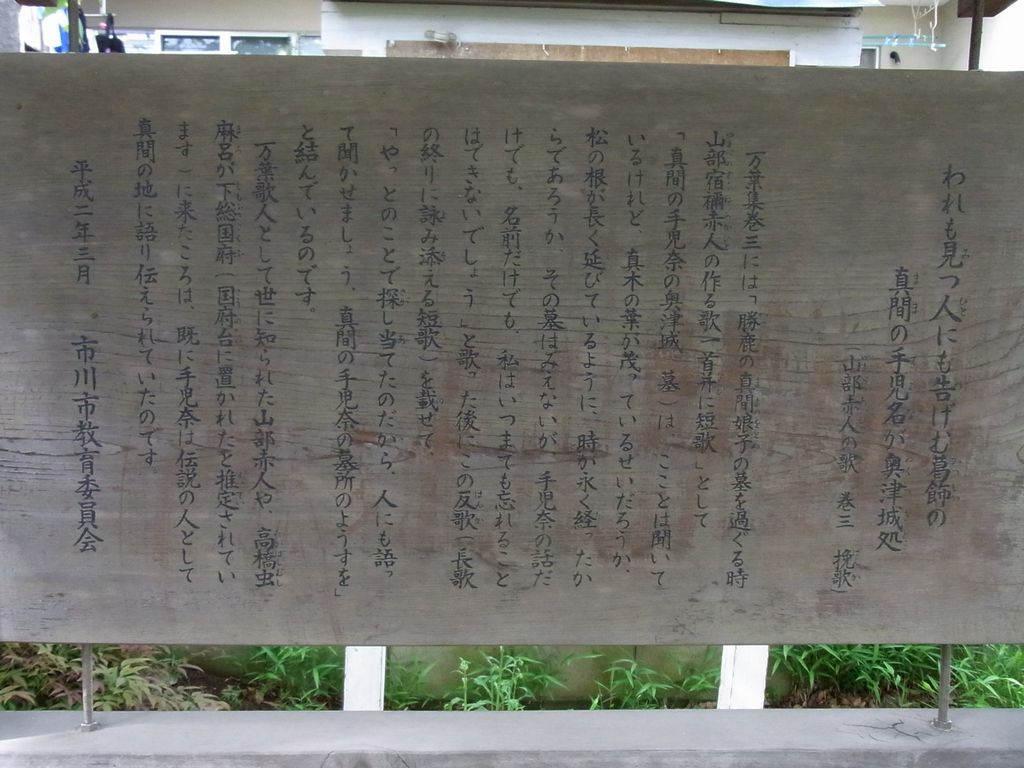 われも見つ人にも告げむ葛飾の
真間の手児名が奥津城処
（山部赤人の歌　巻三　挽歌）
万葉集巻三には「勝鹿の真間娘子の墓を過ぐる時
山部宿禰赤人の作る歌一首并に短歌」として
「真間の手児奈の奥津城（墓）は、こことは聞いて
いるけれど、真木の葉が茂っているせいだろうか、
松の根が長く延びているように、時が永く経ったか
らであろうか、その墓はみえないが、手児奈の話だ
けでも、名前だけでも、私はいつまでも忘れること
はできないでしょう」と歌った後にこの反歌（長歌
の終りに詠み添える短歌）を載せて、
「やっとのことで探し当てたのだから、人にも語っ
て聞かせましょう、真間の手児奈の墓所のようすを」
と結んでいるのです。
万葉歌人として世に知られた山部赤人や、高橋虫
麻呂が下総国府（国府台に置かれたと推定されてい
ます）に来たころは、既に手児奈は伝説の人として
真間の地に語り伝えられていたのです。
平成二年三月　市川市教育委員会